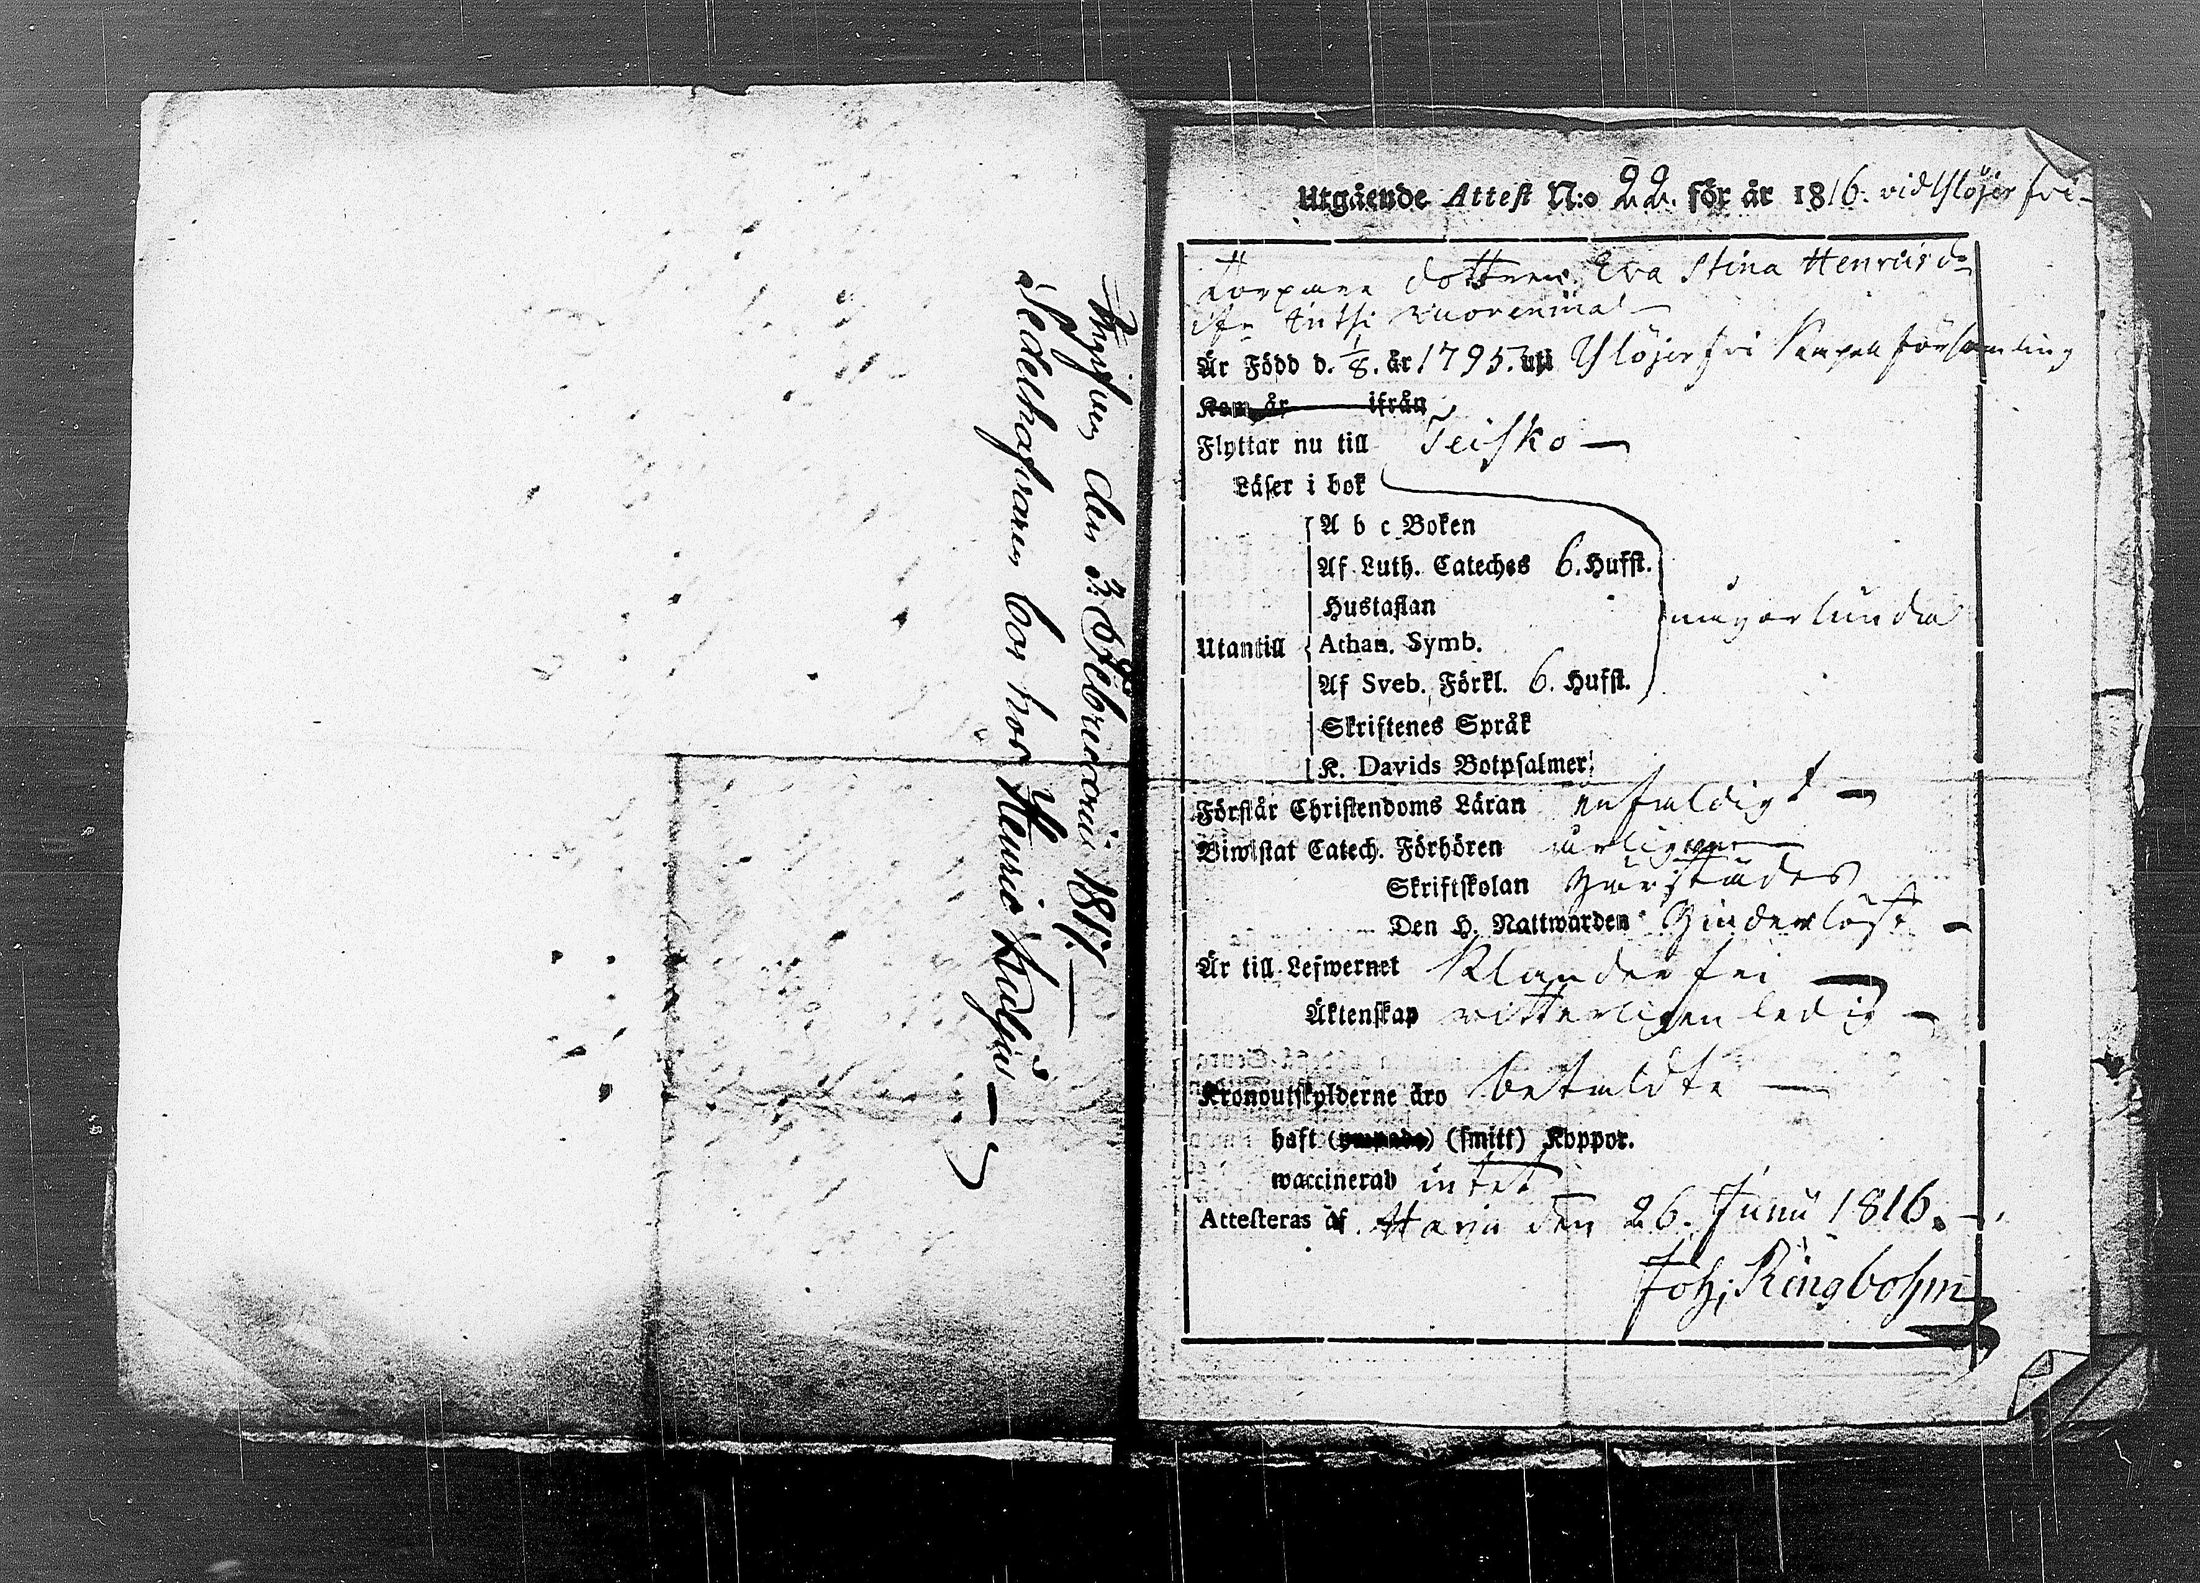 den 3: Februarii 1817. —
Sedelhafvaren bor hos Henric —
Utgående Attest N:o 22. för år 1816. vid Ylöjerfvi
Torpare dottren Eva Stina Henricsdr
ifr
Är Född d. 1/8. år 1795. uti Ylöjerfvi Kapell församling
Kom år ifrån
Flyttar nu till Teisko —
Läser i bok
A b c Boken
Af Luth. Cateches 6. Hufst.
Hustaflan
någorlunda
Utantill
Athan. Symb.
Af Sveb. Förkl. 6. Hufst.
Skriftenes Språk
K. Davids Botpsalmer
Förstår Christendoms Läran enfaldigt —
Biwistat Catech. Förhören årligen
Skriftskolan härstädes
Den H. Nattwarden hinderlöst —
Är till Lefwernet Klanderfri —
Äktenskap witterligen ledig —
Kronoutskylderne äro betaldte —
haft (ympade) (smitt) Koppor.
waccinerad intet
Attesteras af den 26. Junii 1816. —
Joh: Ringbohm